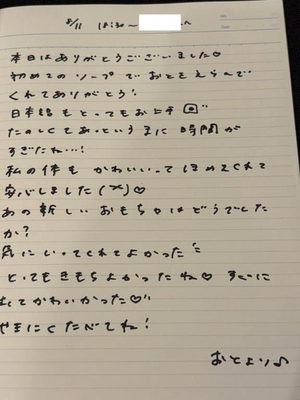 8/11 18:30～ へ
本日はありがとうございました♡
初めてのソープでおとをえらんで
くれてありがとう！
日本語もとってもお上手
たのしくてあっというまに時間が
すぎたね…！
私の体もかわいいってほめてくれて
安心しました♡
あの新しいおもちゃはどうでした
か？
気にいってくれてよかった
とってもきもちよかったね♡ すぐに
かわいかった♡
たべてね！
おとより♪